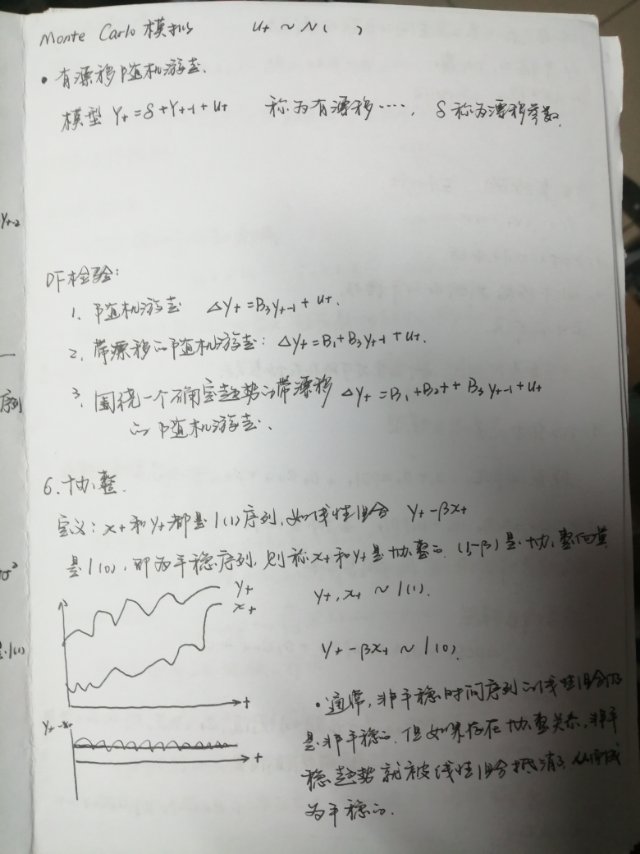 Monte Carlo 模拟 ut ~ N( )
• 有漂移随机游走.
模型 Yt = δ + Yt-1 + ut 称为有漂移……, δ 称为漂移参数.
yt-2
DF检验:
1. 随机游走 ΔYt = B3yt-1 + ut.
2. 带漂移的随机游走: ΔYt = B1 + B3yt-1 + ut.
序列
3. 围绕一个确定趋势的带漂移 ΔYt = B1 + B2t + B3 yt-1 + ut
的随机游走.
6. 协整.
定义: xt 和 yt 都是 I(1) 序列, 如线性组合 yt - βxt
是 I(0), 即为平稳序列, 则称 xt 和 yt 是协整的. (1, -β) 是协整向量
yt
xt
yt, xt ~ I(1).
t
yt - βxt ~ I(0).
• 通常, 非平稳时间序列的线性组合仍
是非平稳的. 但如果存在协整关系, 非平
稳趋势就被线性组合抵消了 从而成
为平稳的.
t